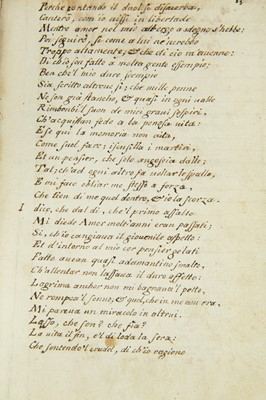 Perche cantando il duol si disacerba,
Canterò, com'io vissi in libertade
Mentre amor nel mio albergo a sdegno s'hebbe:
Poi seguirò, sì come a lui ne'ncrebbe
Troppo altamente; & che di ciò m'avenne:
Di ch'io son fatto à molta gente essempio:
Ben che'l mio duro scempio
Sia scritto altrove sì; che mille penne
Ne son già stanche; & quasi in ogni valle
Rimbombi'l suon de miei gravi sospiri,
Ch'acquistan fede a la penosa vita:
E se qui la memoria non aita,
Come suol fare; iscusilla i martiri,
Et un pensier, che solo angoscia dalle;
Tal; ch'ad ogni altro fa voltar le spalle,
E mi face obliar me stesso a forza,
Che tien di me quel dentro, & io la scorza.
I dico, che dal dì, che'l primo assalto
Mi diede Amor molt'anni eran passati;
Sì, ch'io cangiava il giovenile aspetto:
Et d'intorno al mio cor pensier gelati
Fatto avean quasi adamantino smalto,
Ch'allentar non lassava il duro affetto:
Lagrima anchor non mi bagnava'l petto,
Ne rompea'l sonno; & quel, che in me non era,
Mi pareva un miracolo in altrui.
Lasso, che son? che fui?
La vita il fin, e'l dì loda la sera:
Che sentendo'l crudel, di ch'io ragiono